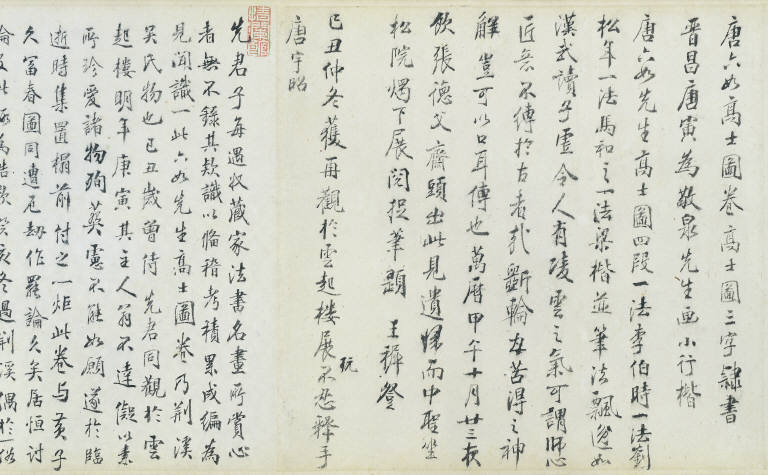 唐六如高士圖卷高士圖三字隸書
晉昌唐寅為敬泉先生画小行楷
唐六如先生高士圖四段一法李伯時一法劉
松年一法馬和之一法梁楷並筆法飄逸如
漢武讀子虛令人有凌雲之氣可謂師心
匠意不縛於古者札斵輪友苦得之神
解豈可以口耳傳也萬曆甲午十月廿三夜
飲張德父齋頭出此見遺歸而中聖坐
松院燭下展閱捉筆題 王穉登
己丑仲冬獲再觀於雲起樓展玩不忍釋手
唐宇昭
先君子每遇收藏家法書名畫所賞心
者無不錄其款識以備稽考積累成編為
見聞識一此六如先生高士圖卷乃荆溪
吳氏物也己丑歲曾侍 先君同觀於雲
起樓明年庚寅其主人翁不達儗以素
所珍愛諸物殉葬慮不能如願遂於臨
逝時集置榻前付之一炬此卷與黃子
久富春圖同遭厄劫作罷論久矣居恒討